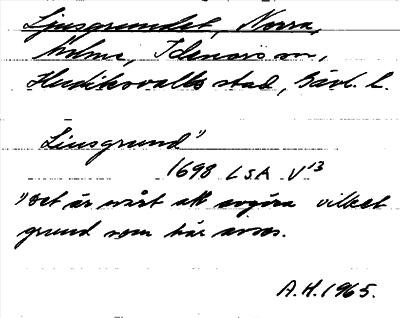 Ljusgrundet, Norra,
holme, Idenors sn,
Hudiksvalls stad, Gävl. l.
Liusgrund"
1698 LSA V 13
"Det är svårt att avgöra vilket
grund som här avses.
A.H. 1965.